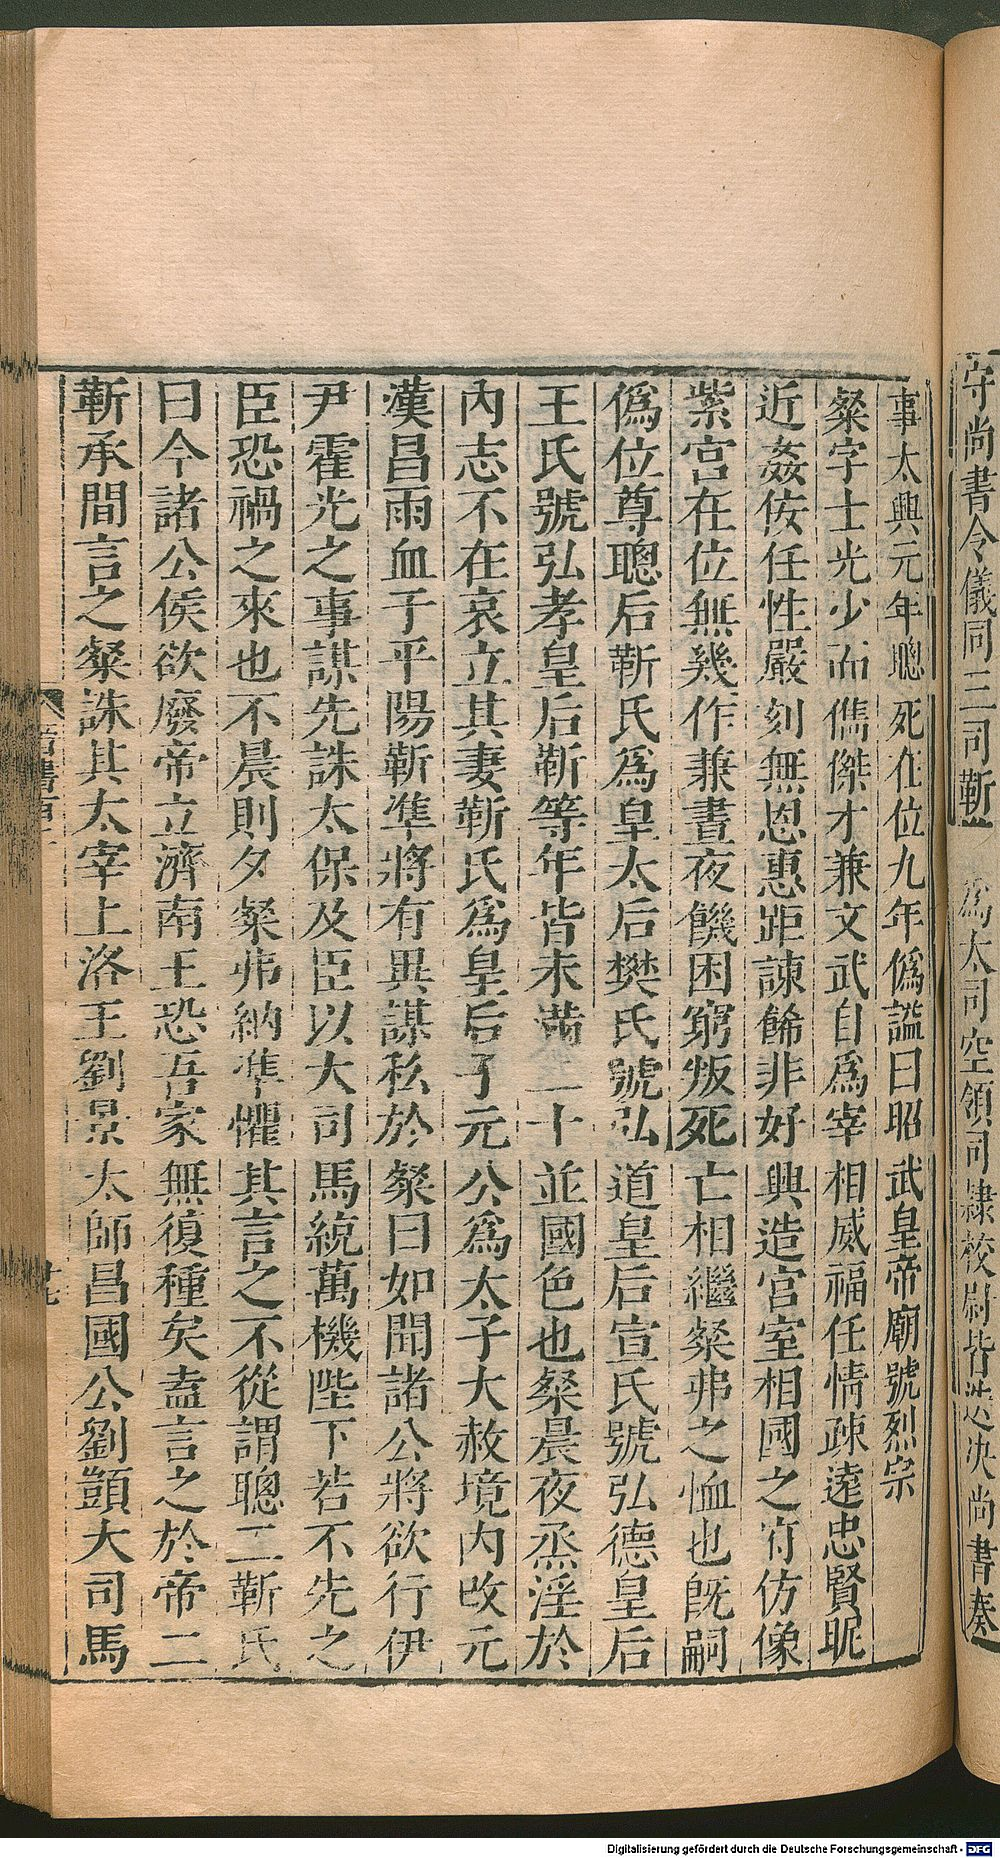 守尚書令儀同三司靳 爲太司空領司隸校尉皆迭決尚書奏
事太興元年聰死在位九年僞謚曰昭武皇帝廟號烈宗
粲字士光少而儁傑才兼文武自爲宰相威福任情疎遠忠賢昵
近姦佞任性嚴刻無恩惠距諫餙非好興造宮室相國之府仿像
紫宮在位無幾作兼晝夜饑困窮叛死亡相繼粲弗之恤也旣嗣
僞位尊聰后靳氏爲皇太后樊氏號弘道皇后宣氏號弘德皇后
王氏號弘孝皇后靳等年皆未滿二十並國色也粲晨夜烝淫於
內志不在哀立其妻靳氏爲皇后子元公爲太子大赦境內改元
漢昌雨血于平陽靳準將有異謀私於粲曰如聞諸公將欲行伊
尹霍光之事謀先誅太保及臣以大司馬統萬機陛下若不先之
臣恐禍之來也不晨則夕粲弗納準懼其言之不從謂聰二靳氏
曰今諸公侯欲廢帝立濟南王恐吾家無復種矣盍言之於帝二
靳承間言之粲誅其太宰上洛王劉景太師昌國公劉顗大司馬
晉書百二
廿七
Digitalisierung gefördert durch die Deutsche Forschungsgemeinschaft - DFG